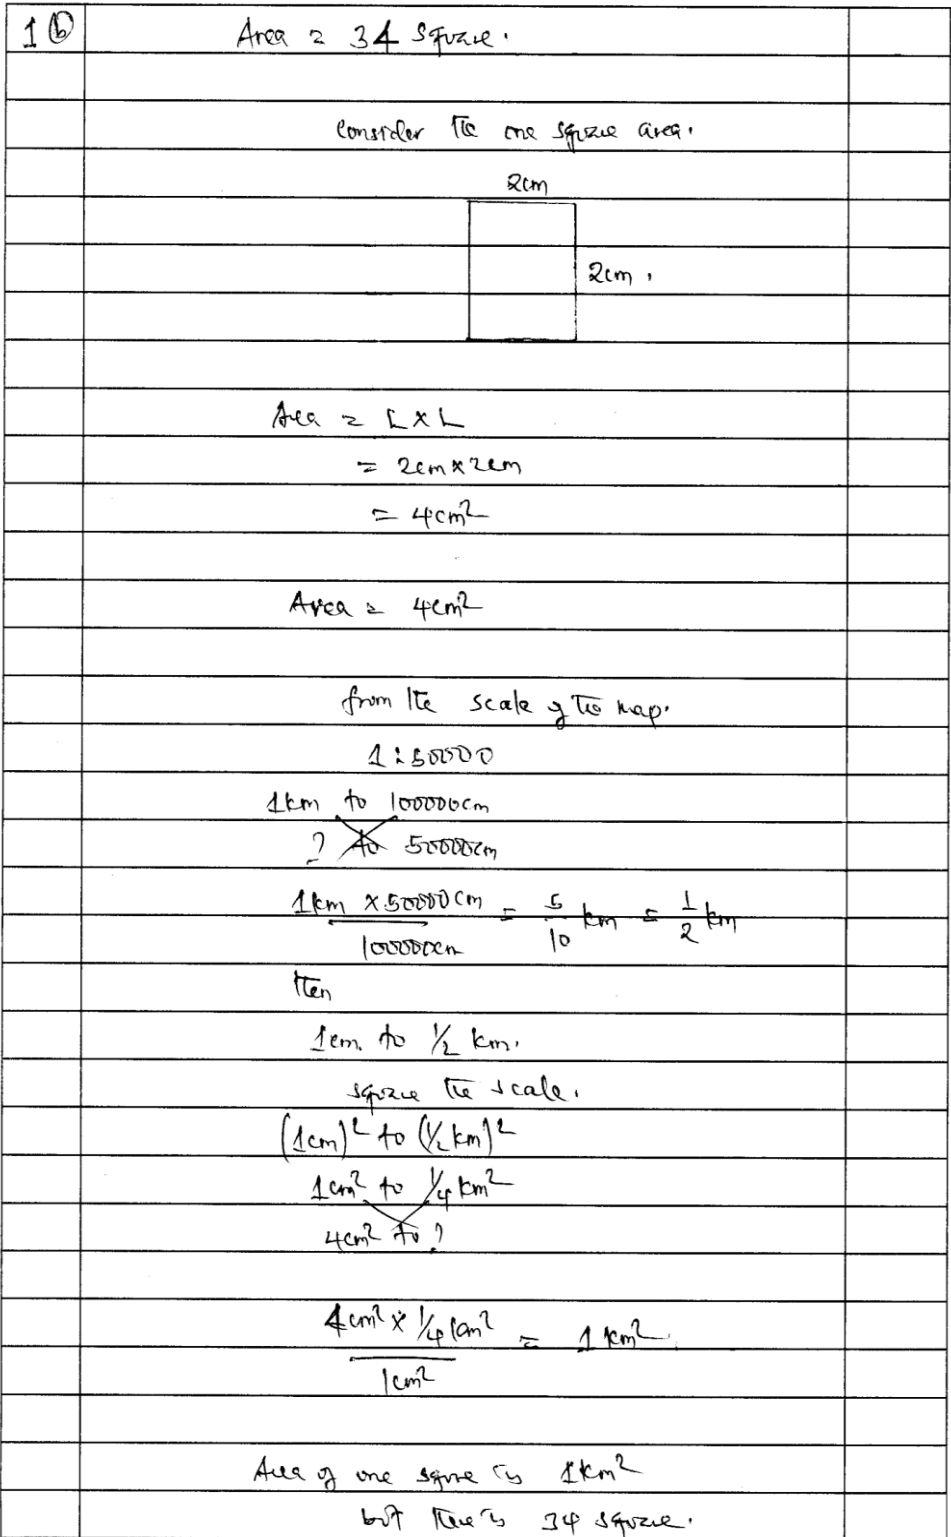 1 (b) Area = 34 square.
Consider the one square area.
2cm
2cm.
Area = L x L
= 2cm x 2cm
= 4cm²
Area = 4cm²
from the scale of the map.
1:50000
1km to 100000cm
? to 50000cm
1km x 50000cm / 100000cm = 5/10 km = 1/2 km
then
1cm. to 1/2 km.
square the scale.
(1cm)² to (1/2 km)²
1cm² to 1/4 km²
4cm² to ?
4cm² x 1/4 km² / 1cm² = 1 km².
Area of one square is 1km²
but there is 34 square.